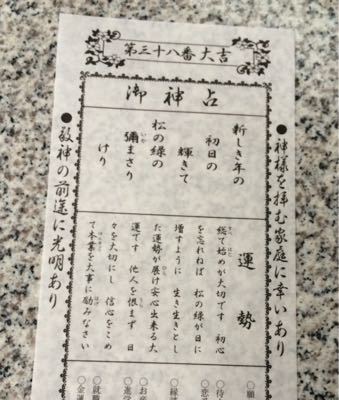 第三十八番大吉
御神占
●神様を拝む家庭に幸いあり
新しき年の
初日の
輝きて
松の緑の
彌まさり
いや
けり
運勢
総て始めが大切です 初心
を忘れねば 松の緑が日に
増すように 生き生きとし
た運勢が展け安心出来る大
運です 他人を恨まず 日
々を大切にし 信心をこめ
て本業を大事に励みなさい
●敬神の前途に光明あり
○願
○待
○縁
○お
○進
○就
○金運